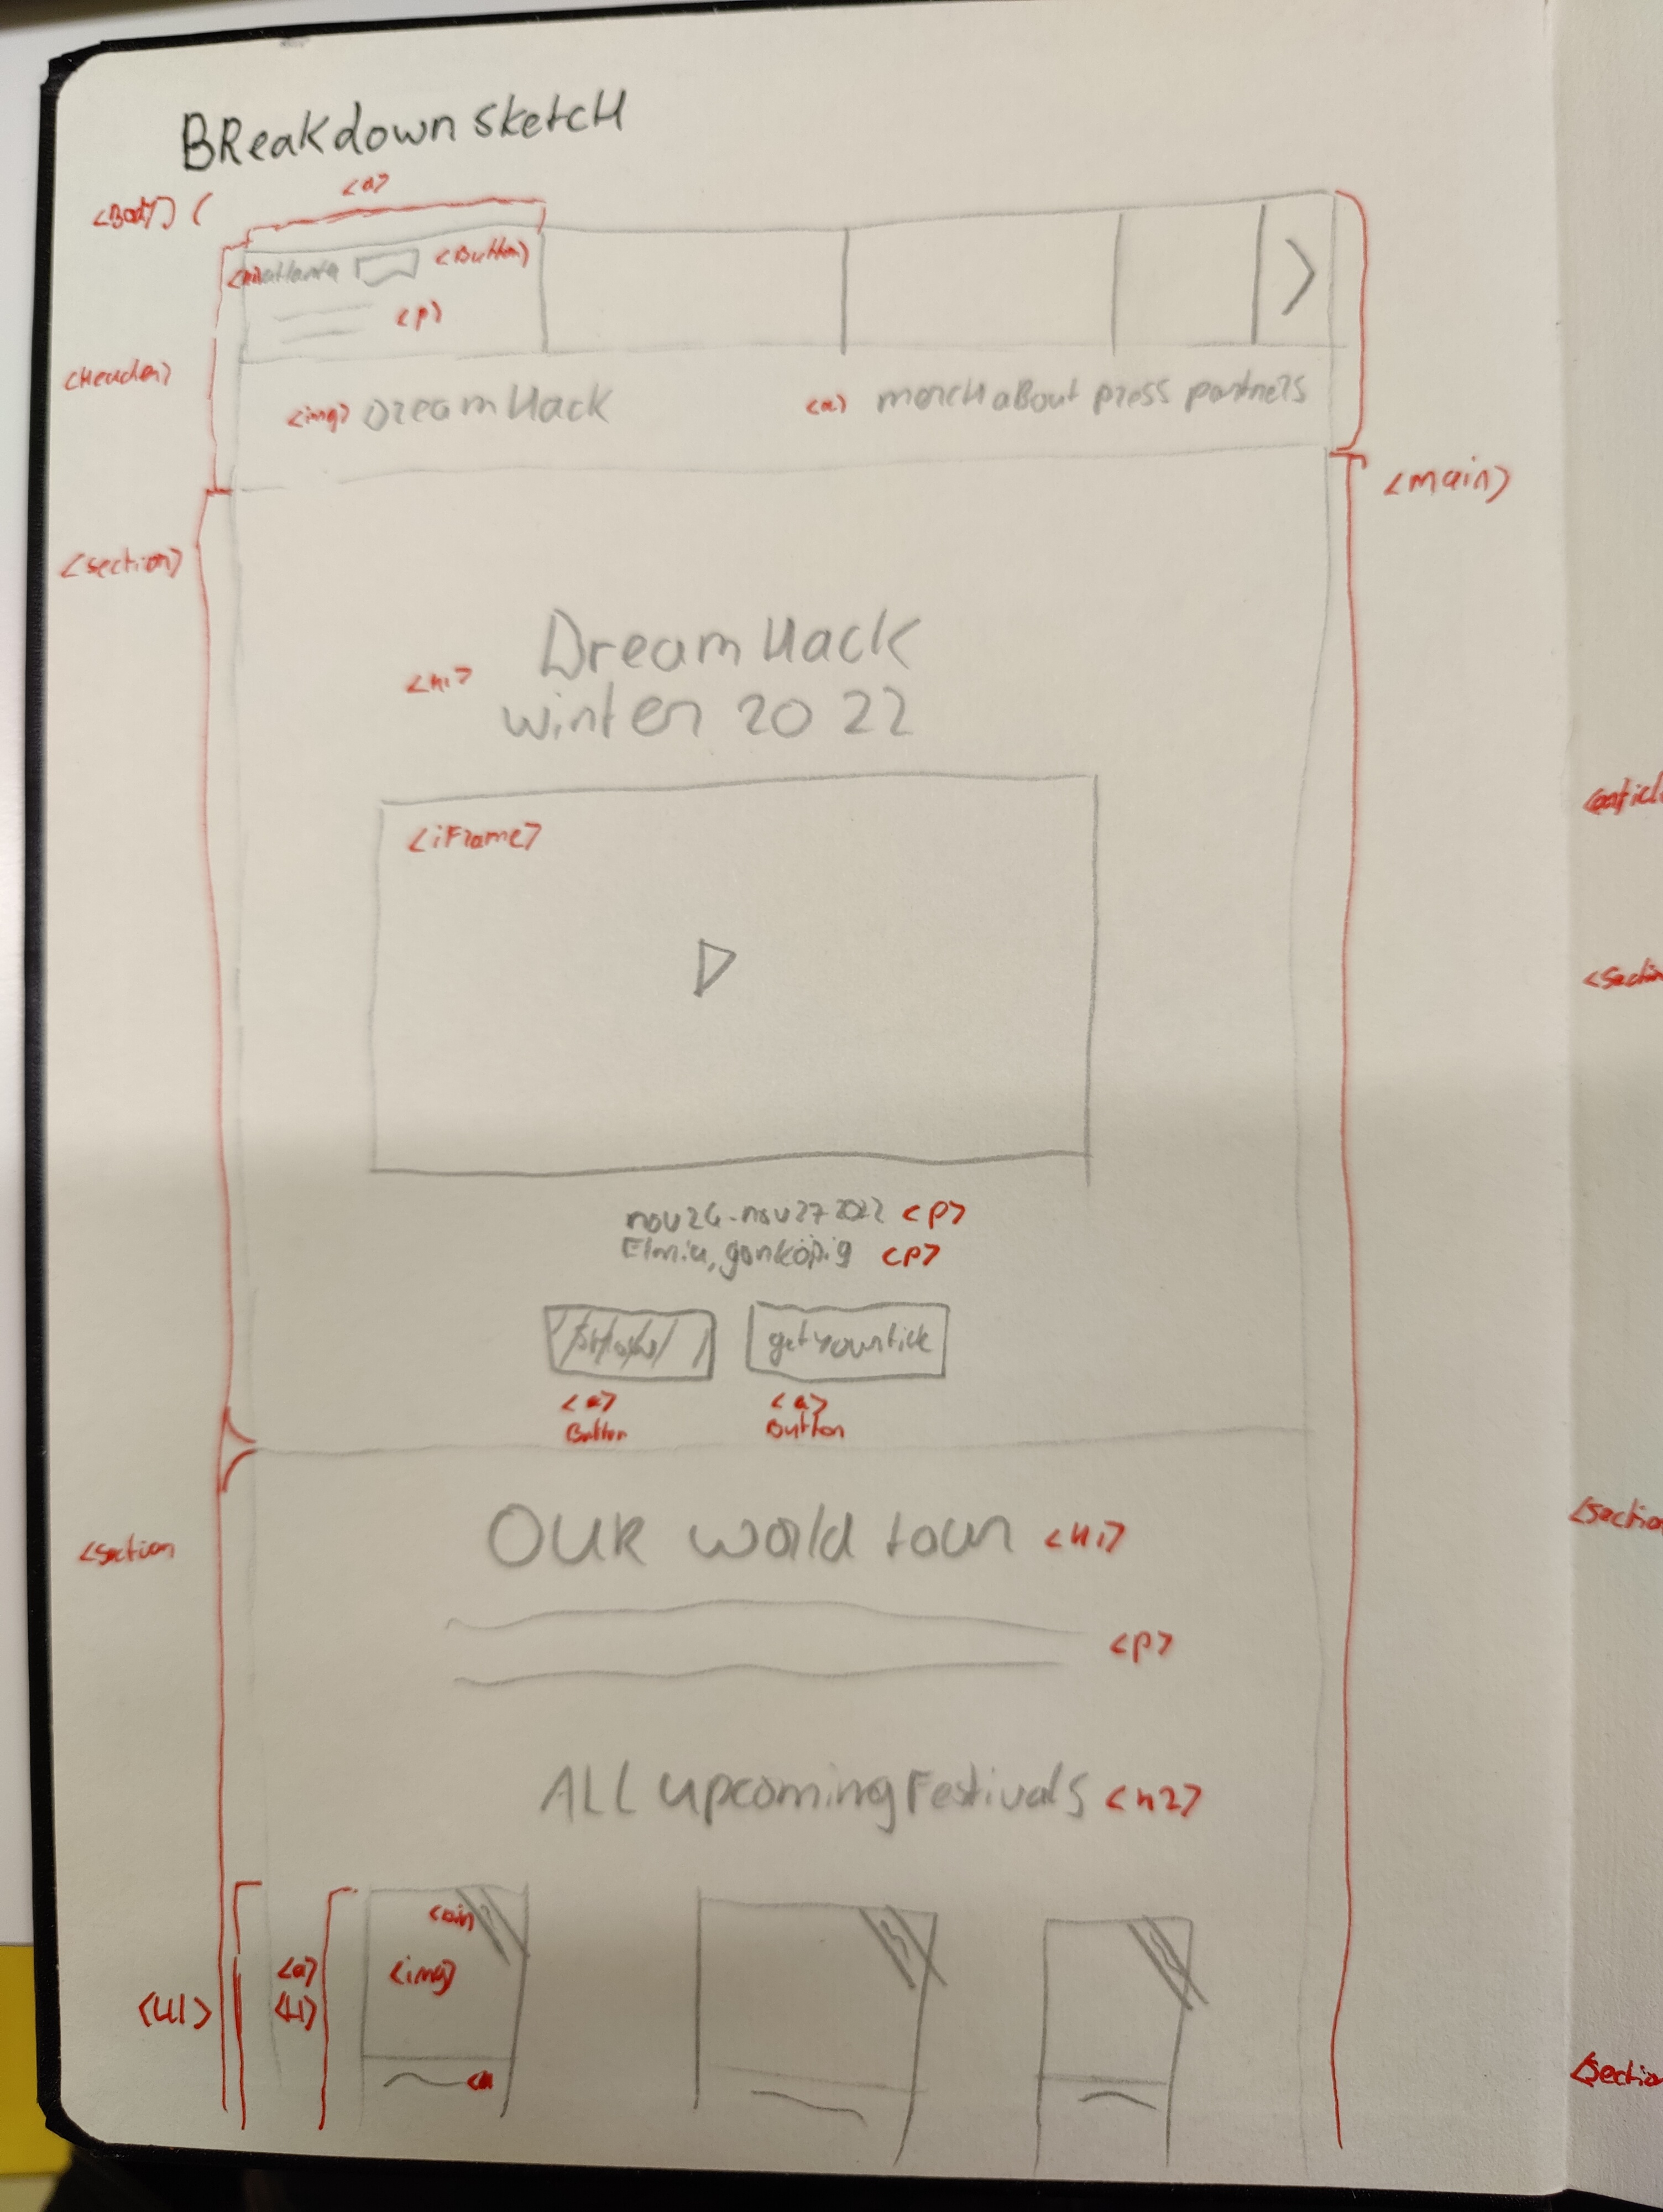 BReakdown sketcH
<Body> (
<a>
atlanta <Button>
<p>
<Header>
<img> DreamHack
<a> mercH aBout press partners
<main>
<section>
<h1>
DreamHack
winter 2022
<iFrame>
nov 24-nov 27 2022 <p>
Elmia, <p>
getyourtick
<a>
Button
<a>
Button
<section
OUR world tour <H1>
<p>
ALL upcoming Festivals <h2>
<ul>
<a>
<li>
<img>
<section
<section